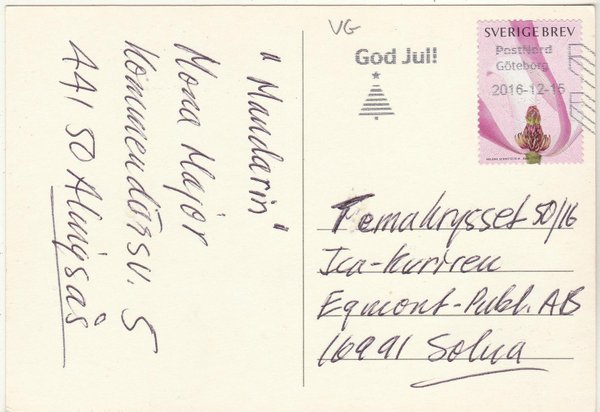 "Mandarin"
Mona Major
Kommendörsv. 5
441 50 Alingsås
VG
God Jul!
SVERIGE BREV
PostNord
Göteborg
2016-12-15
Temakrysset 50/16
Ica-kuriren
Egmont-Publ. AB
16991 Solna